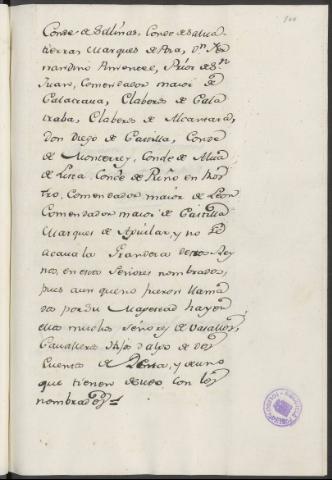 Conde de Salinas, Conde de Salva
tierra Marques de Ara, Dn. Her
nandino Pimentel, Prior de Sn.
Juan, Comendador maior de
Calatraua, Clabero de Cala
traba, Clabero de Alcantara,
Don Diego de Castilla, Conde
de Monterrey, Conde de Mira
de Luna, Conde de
tro, Comendador maior de Leon
Comendador maior de Castilla
Marques de Aguilar, y no se
acaua la Grandeza destos Rey
nos, en estos Señores nombrados,
pues aun que no fueron llama
dos por su Magestad hay en
ellos muchos Señores de Vasallos,
Caualleros Hijos dalgo de dos
Cuentos de Renta, y de uno
que tienen deudo con los
nombrados